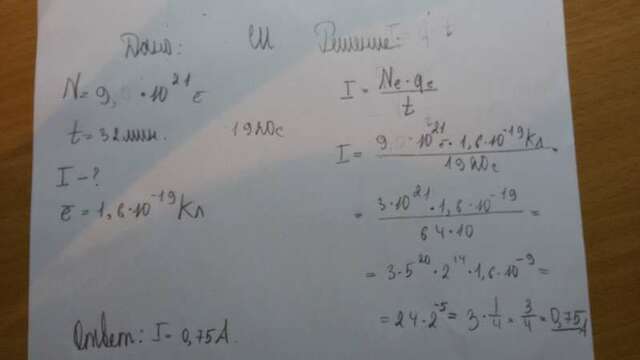 Дано: СИ Решение:
N = 9, · 10²¹ ē
t = 32 мин. 1920с
I - ?
ē = 1,6·10⁻¹⁹ Кл
I = Nₑ · qₑ / t
I = 9 · 10²¹ · 1,6·10⁻¹⁹ Кл / 1920с =
= 3·10²¹ · 1,6·10⁻¹⁹ / 64·10 =
= 3·5²⁰ · 2¹⁴ · 1,6·10⁻⁹ =
= 24·2⁻⁵ = 3·1/4 = 3/4 = 0,75А
Ответ: I = 0,75А.